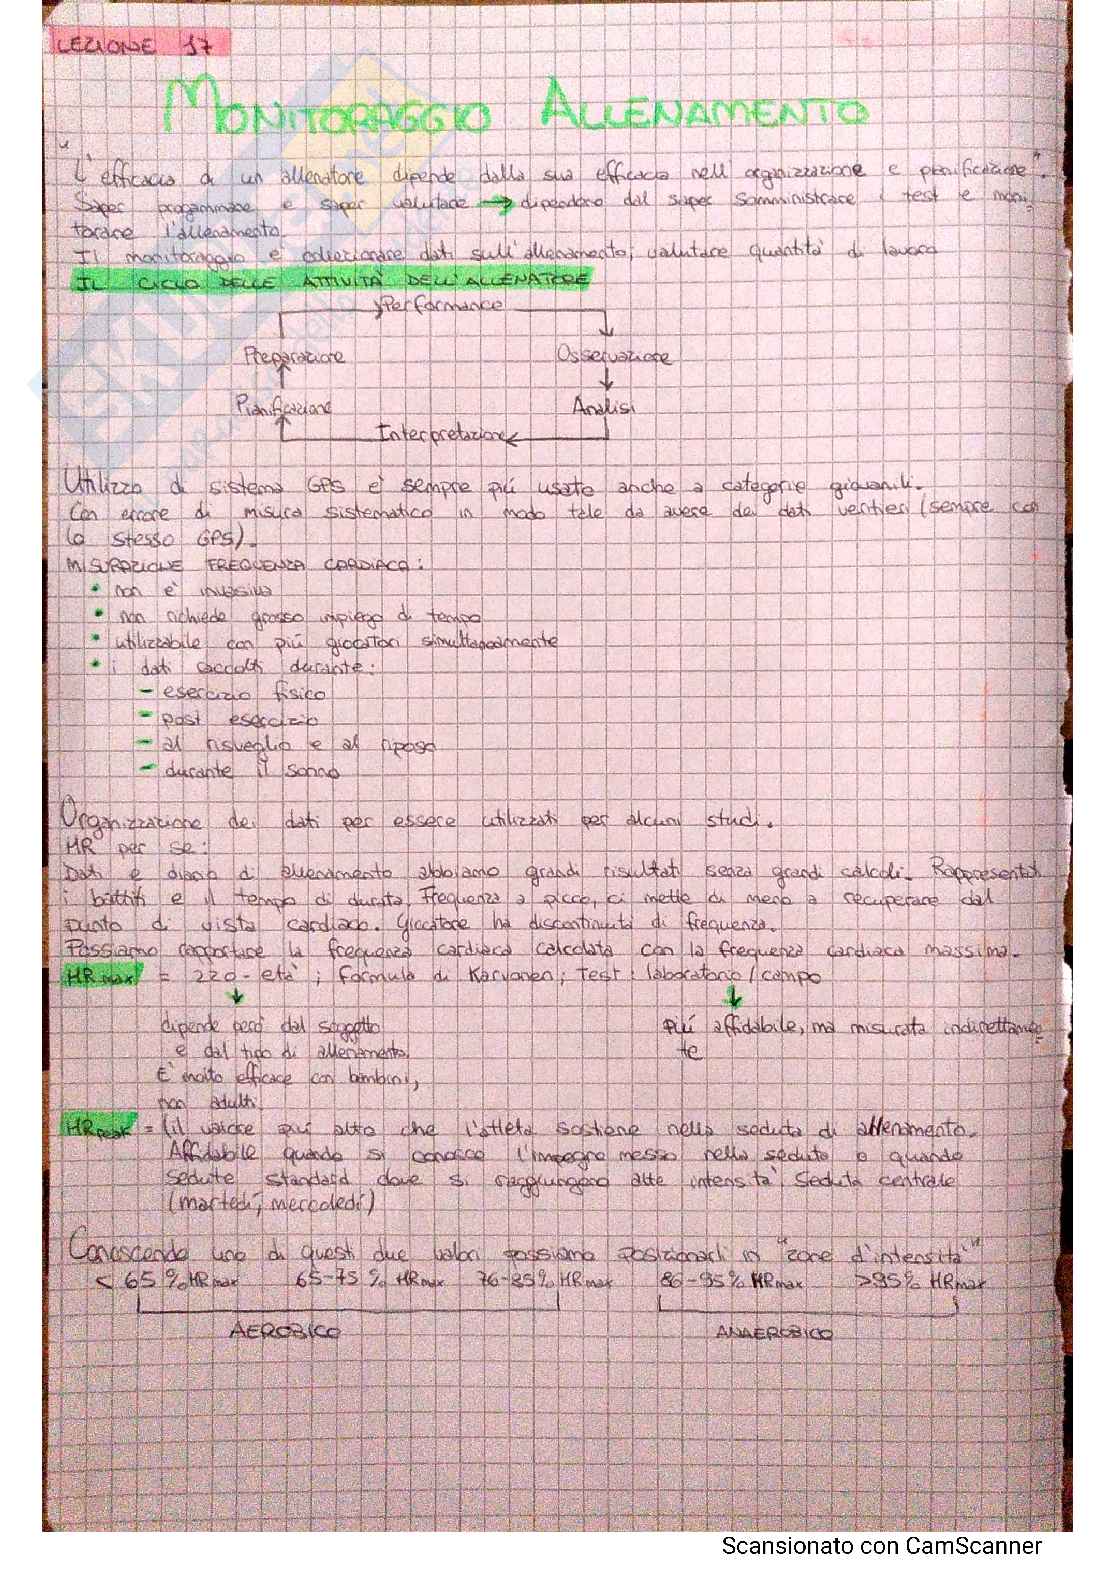 LEZIONE 17
MONITORAGGIO ALLENAMENTO
"L'efficacia di un allenatore dipende dalla sua efficacia nell'organizzazione e pianificazione".
Saper programmare e saper valutare → dipendono dal saper somministrare i test e moni-
torare l'allenamento.
Il monitoraggio è collezionare dati sull'allenamento, valutare quantità di lavoro
IL CICLO DELLE ATTIVITÀ DELL'ALLENATORE
Performance
Preparazione Osservazione
Pianificazione Analisi
Interpretazione
Utilizzo di sistema GPS è sempre più usato anche a categorie giovanili.
Con errore di misura sistematico in modo tale da avere dei dati veritieri (sempre con
lo stesso GPS).
MISURAZIONE FREQUENZA CARDIACA:
• non è invasiva
• non richiede grosso impiego di tempo
• utilizzabile con più giocatori simultaneamente
• i dati raccolti durante:
- esercizio fisico
- post esercizio
- al risveglio e al riposo
- durante il sonno
Organizzazione dei dati per essere utilizzati per alcuni studi.
HR per se:
Dati e diario di allenamento abbiamo grandi risultati senza grandi calcoli. Rappresentati
i battiti e il tempo di durata. Frequenza a picco, ci mette di meno a recuperare dal
punto di vista cardiaco. Giocatore ha discontinuità di frequenza.
Possiamo rapportare la frequenza cardiaca calcolata con la frequenza cardiaca massima.
HRmax = 220-età ; formula di Karvonen; Test: laboratorio/campo
dipende però dal soggetto più affidabile, ma misurata indirettamen-
e dal tipo di allenamento. te
È molto efficace con bambini,
non adulti
HRpeak = (il valore più alto che l'atleta sostiene nella seduta di allenamento.
Affidabile quando si conosce l'impegno messo nella seduta o quando
sedute standard dove si raggiungono alte intensità. Seduta centrale
(martedì, mercoledì)
Conoscendo uno di questi due valori possiamo posizionarli in "zone d'intensità"
< 65% HRmax 65-75% HRmax 76-85% HRmax 86-95% HRmax >95% HRmax
AEROBICO ANAEROBICO
Scansionato con CamScanner